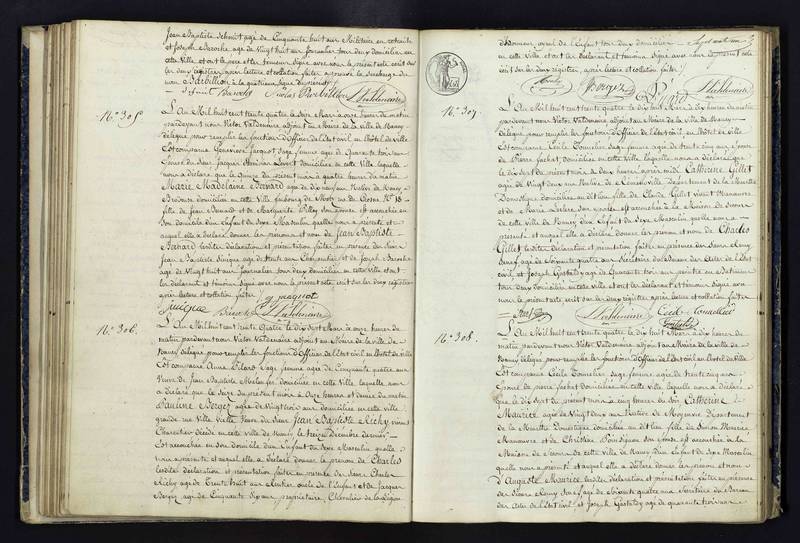 Jean Baptiste agé de Cinquante huit ans Militaire en retraite
et Joseph Baroche age de Vingt huit ans Journalier tous deux domiciliés en
cette Ville et ont le pere et les temoins signé avec nous le présent acte
sur les deux registres après lecture et collation faites
N.° 305.
L'An Mil huit cent trente quatre le Seize Mars à onze heures du matin
pardevant nous Victor Vautdemaire adjoint au Maire de la Ville de Nancy
délégué pour remplir les fonctions d'Officier de l'Etat civil en l'hôtel de Ville
Est comparue Genevieve Jacquot Sage femme agée de Quarante trois ans
domiciliée en cette Ville laquelle
nous a déclaré que le du présent mois à quatre heures du matin
Marie Madelaine Bernard agée de dix neuf ans Native de Nancy
Brodeuse domiciliée en cette Ville faubourg
fille de Jean Bernard et de Marguerite son épouse est accouchée en
Son domicile d'un Enfant du Sexe Masculin quelle nous a présenté et
auquel elle a déclaré donner les prénoms et nom de Jean Baptiste
Bernard lesdites déclaration et présentation faites en présence des Sieurs
Jean Baptiste agé de trente ans Charpentier et de Joseph Baroche
agé de Vingt huit ans Journalier tous deux domiciliés en cette Ville et ont
les déclarant et témoins signé avec nous le présent acte écrit sur les deux registres
après lecture et collation faites
g maquot
N.° 306.
L'An Mil huit cent trente Quatre le dix Sept Mars à onze heures du
matin pardevant nous Victor Vautdemaire adjoint au Maire de la ville de
Nancy délégué pour remplir les fonctions d'Officier de l'Etat civil en l'hôtel de Ville
Est comparue Anne Sage femme agée de Cinquante quatre ans
Veuve de Jean Baptiste domiciliée en cette ville laquelle nous
a déclaré que le Seize du présent mois à Onze heures et demie du matin
Pauline Berger agée de Vingt trois ans domiciliée en cette ville
grande rue Ville Vieille Veuve du Sieur Jean Baptiste Richy vivant
Charcutier décédé en cette ville de Nancy le treize Décembre dernier
Est accouchée en Son domicile d'un Enfant du Sexe Masculin quelle
nous a présenté et auquel elle a déclaré donner le prénom de Charles
lesdites déclaration et présentation faites en présence des Sieurs Charles
Richy agé de Trente huit ans Rentier oncle de l'Enfant et de Jacques
Berger agé de Cinquante Six ans, propriétaire, Chevalier de la Légion
d'Honneur, ayeul de l'Enfant tous deux domiciliés
en cette ville, et ont les déclarant et témoins signé avec nous le présent acte
écrit sur les deux registres, après lecture et collation faites
N.° 307.
L'An Mil huit cent trente quatre le dix huit Mars à dix heures du matin
pardevant nous Victor Vautdemaire adjoint au Maire de la Ville de Nancy
délégué pour remplir les fonctions d'Officier de l'Etat civil, en l'hôtel de Ville
Est comparue Cécile Tonnelier Sage femme agée de trente cinq ans
de Pierre Jachet domiciliée en cette Ville laquelle nous a déclaré que
le dix sept du présent mois à deux heures après midi Catherine Gillet
agée de Vingt deux ans Native de Département de la Meurthe
Domestique domiciliée au dit lieu fille de Claude Gillet vivant Manœuvre
et de Marie son épouse est accouchée à la Maison de Secours
de cette Ville de Nancy d'un Enfant du Sexe Masculin quelle nous a
présenté et auquel elle a déclaré donner les prénom et nom de Charles
Gillet lesdites déclaration et présentation faites en présence des Sieurs Remy
agé de Soixante quatre ans Secrétaire du Bureau des Actes de l'Etat
civil et Joseph Gastaldy agé de Quarante trois ans peintre en Batimens
tous deux domiciliés en cette Ville et ont les déclarant et témoins signé avec
nous le présent acte écrit sur les deux registres, après lecture et collation faites
Cecile Tonnellier
N.° 308.
L'An Mil huit cent trente quatre le dix huit Mars à dix heures du
matin pardevant nous Victor Vautdemaire adjoint au Maire de la Ville de
Nancy délégué pour remplir les fonctions d'Officier de l'Etat civil en l'hôtel de Ville
Est comparue Cécile Tonnelier Sage femme agée de trente cinq ans
de pierre Jachet domiciliée en cette Ville laquelle nous a déclaré
que le dix Sept du présent mois à cinq heures du soir Catherine
Maurice agée de Vingt deux ans Native de Moyenvic Département
de la Meurthe Domestique domiciliée au dit lieu fille de Simon Maurice
Manœuvre et de Christine son épouse est accouchée à la
Maison de Secours de cette ville de Nancy d'un Enfant du Sexe Masculin
quelle nous a présenté et auquel elle a déclaré donner les prénom et nom
d'Auguste Maurice lesdites déclaration et présentation faites en présence
des Sieurs Remy agé de Soixante quatre ans Secrétaire du Bureau
des Actes de l'Etat civil, et Joseph Gastaldy agé de quarante trois ans